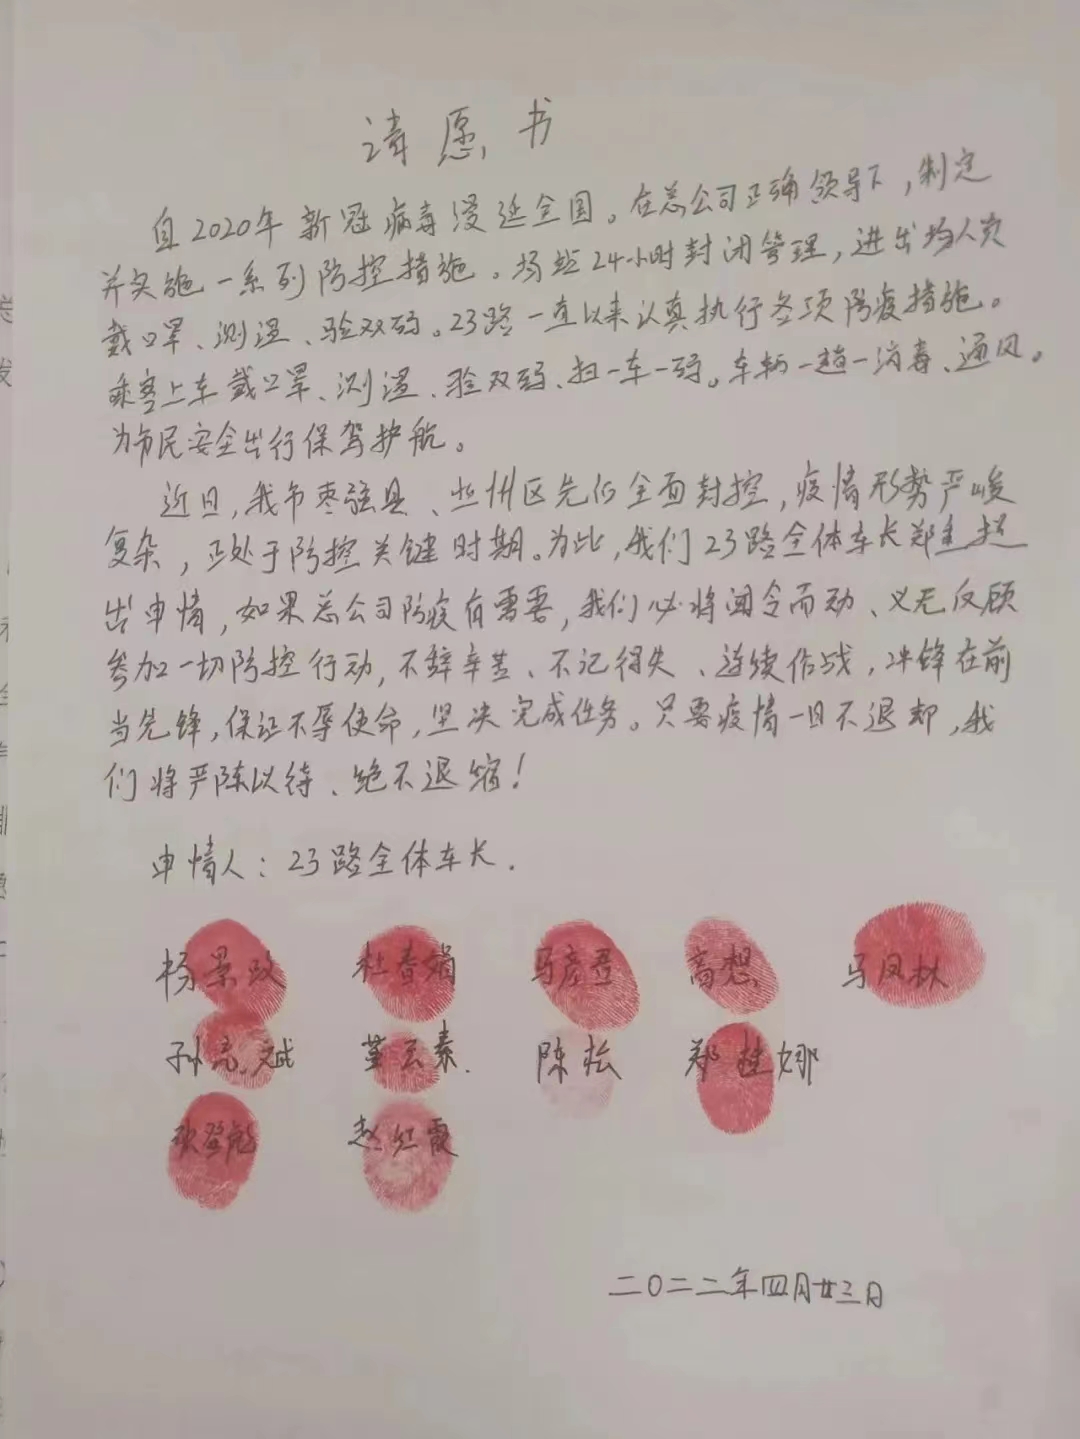 请愿书
自2020年新冠病毒漫延全国。在总公司正确领导下，制定
并实施一系列防控措施。场站24小时封闭管理，进出场人员
戴口罩、测温、验双码。23路一直以来认真执行各项防疫措施。
乘客上车戴口罩、测温、验双码、扫一车一码。车辆一趟一消毒、通风。
为市民安全出行保驾护航。
近日，我市枣强县、冀州区先后全面封控，疫情形势严峻
复杂，正处于防控关键时期。为此，我们23路全体车长郑重提
出申情，如果总公司防疫有需要，我们必将闻令而动、义无反顾
参加一切防控行动，不辞辛苦、不记得失、连续作战，冲锋在前
当先锋，保证不辱使命，坚决完成任务。只要疫情一日不退却，我
们将严陈以待、绝不退缩！
申情人：23路全体车长.
杨景政 杜春娟 马彦 高想 马凤林
孙志斌 董云素. 陈松 郑桂娜
张登彪 赵红霞
二〇二二年四月廿三日